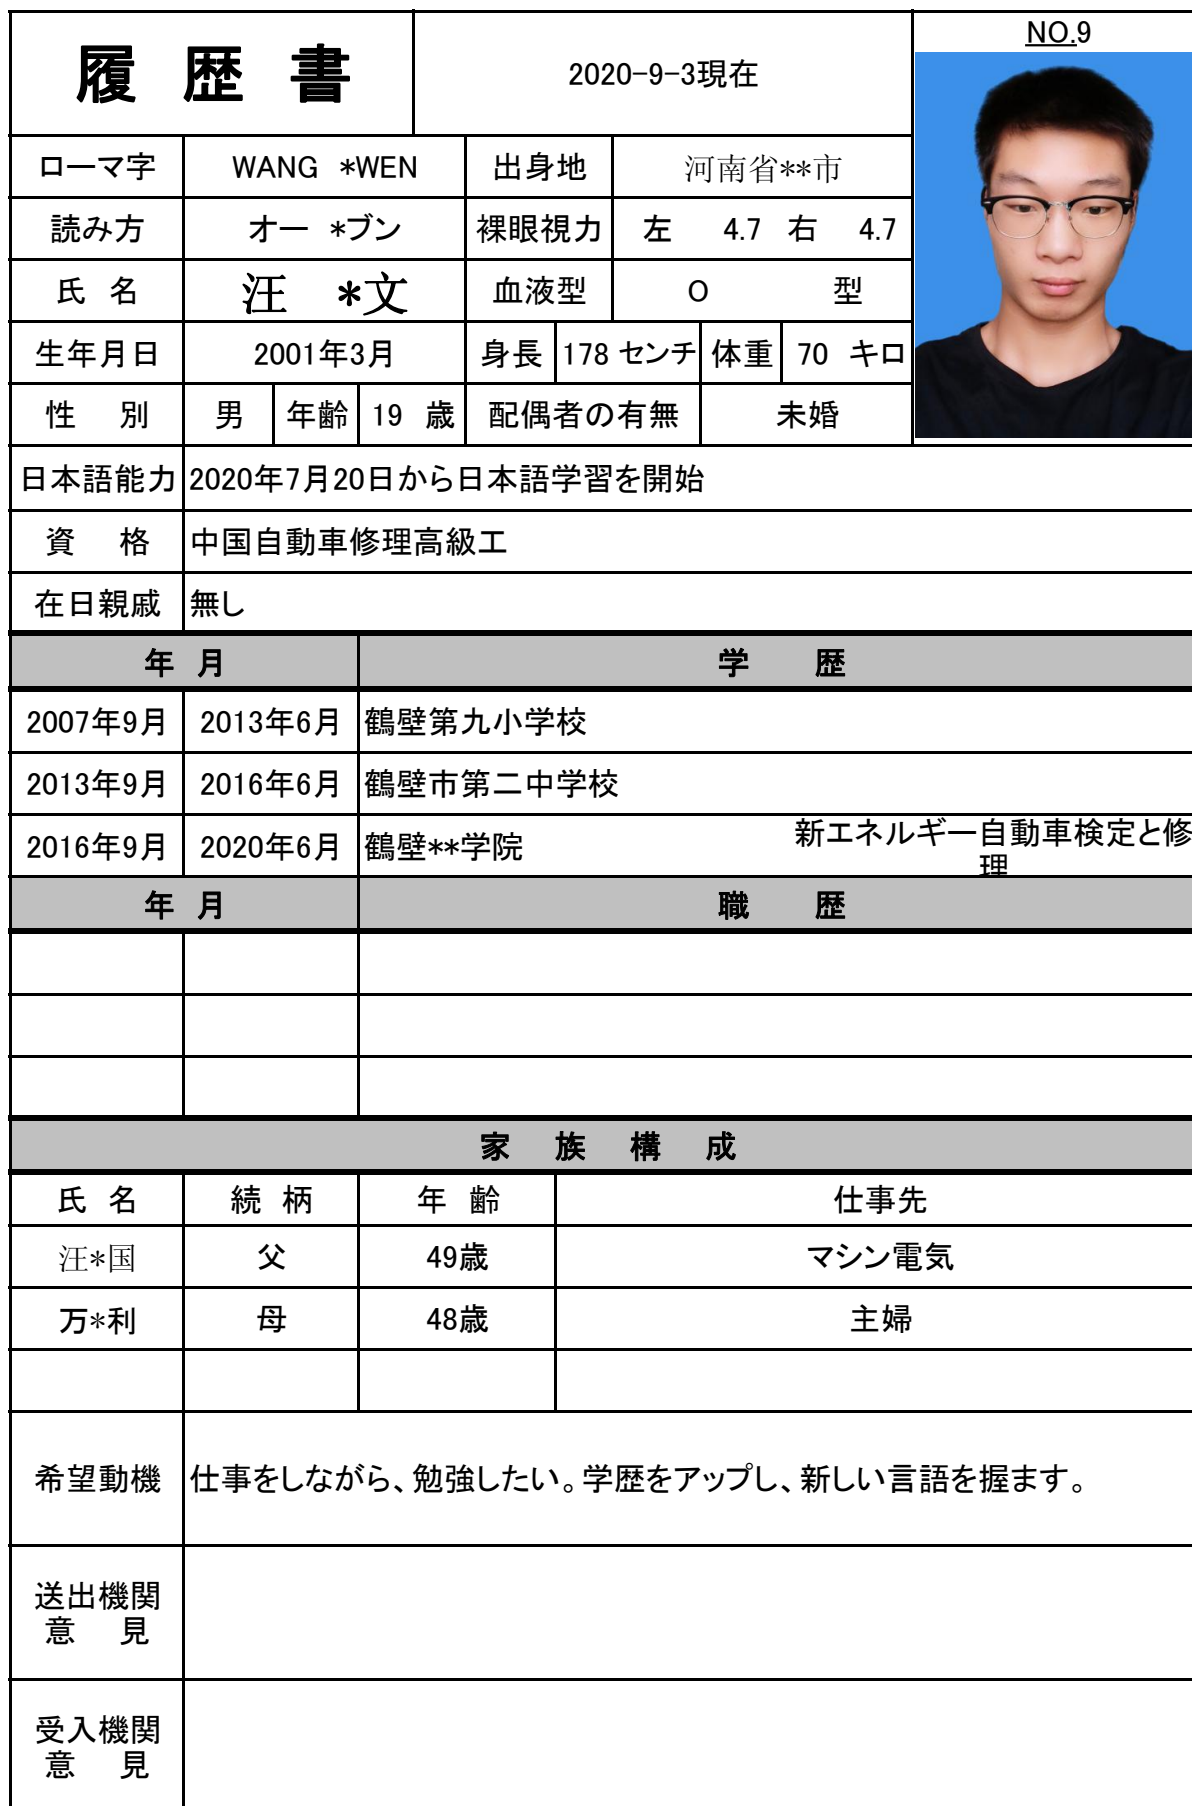 履 歴 書
2020-9-3現在
NO.9
ローマ字 WANG *WEN 出身地 河南省**市
読み方 オー *ブン 裸眼視力 左 4.7 右 4.7
氏 名 汪 *文 血液型 O 型
生年月日 2001年3月 身長 178 センチ 体重 70 キロ
性 別 男 年齢 19 歳 配偶者の有無 未婚
日本語能力 2020年7月20日から日本語学習を開始
資 格 中国自動車修理高級工
在日親戚 無し
年 月 学 歴
2007年9月 2013年6月 鶴壁第九小学校
2013年9月 2016年6月 鶴壁市第二中学校
2016年9月 2020年6月 鶴壁**学院 新エネルギー自動車検定と修
理
年 月 職 歴
家 族 構 成
氏 名 続 柄 年 齢 仕事先
汪*国 父 49歳 マシン電気
万*利 母 48歳 主婦
希望動機 仕事をしながら、勉強したい。学歴をアップし、新しい言語を握ます。
送出機関
意 見
受入機関
意 見